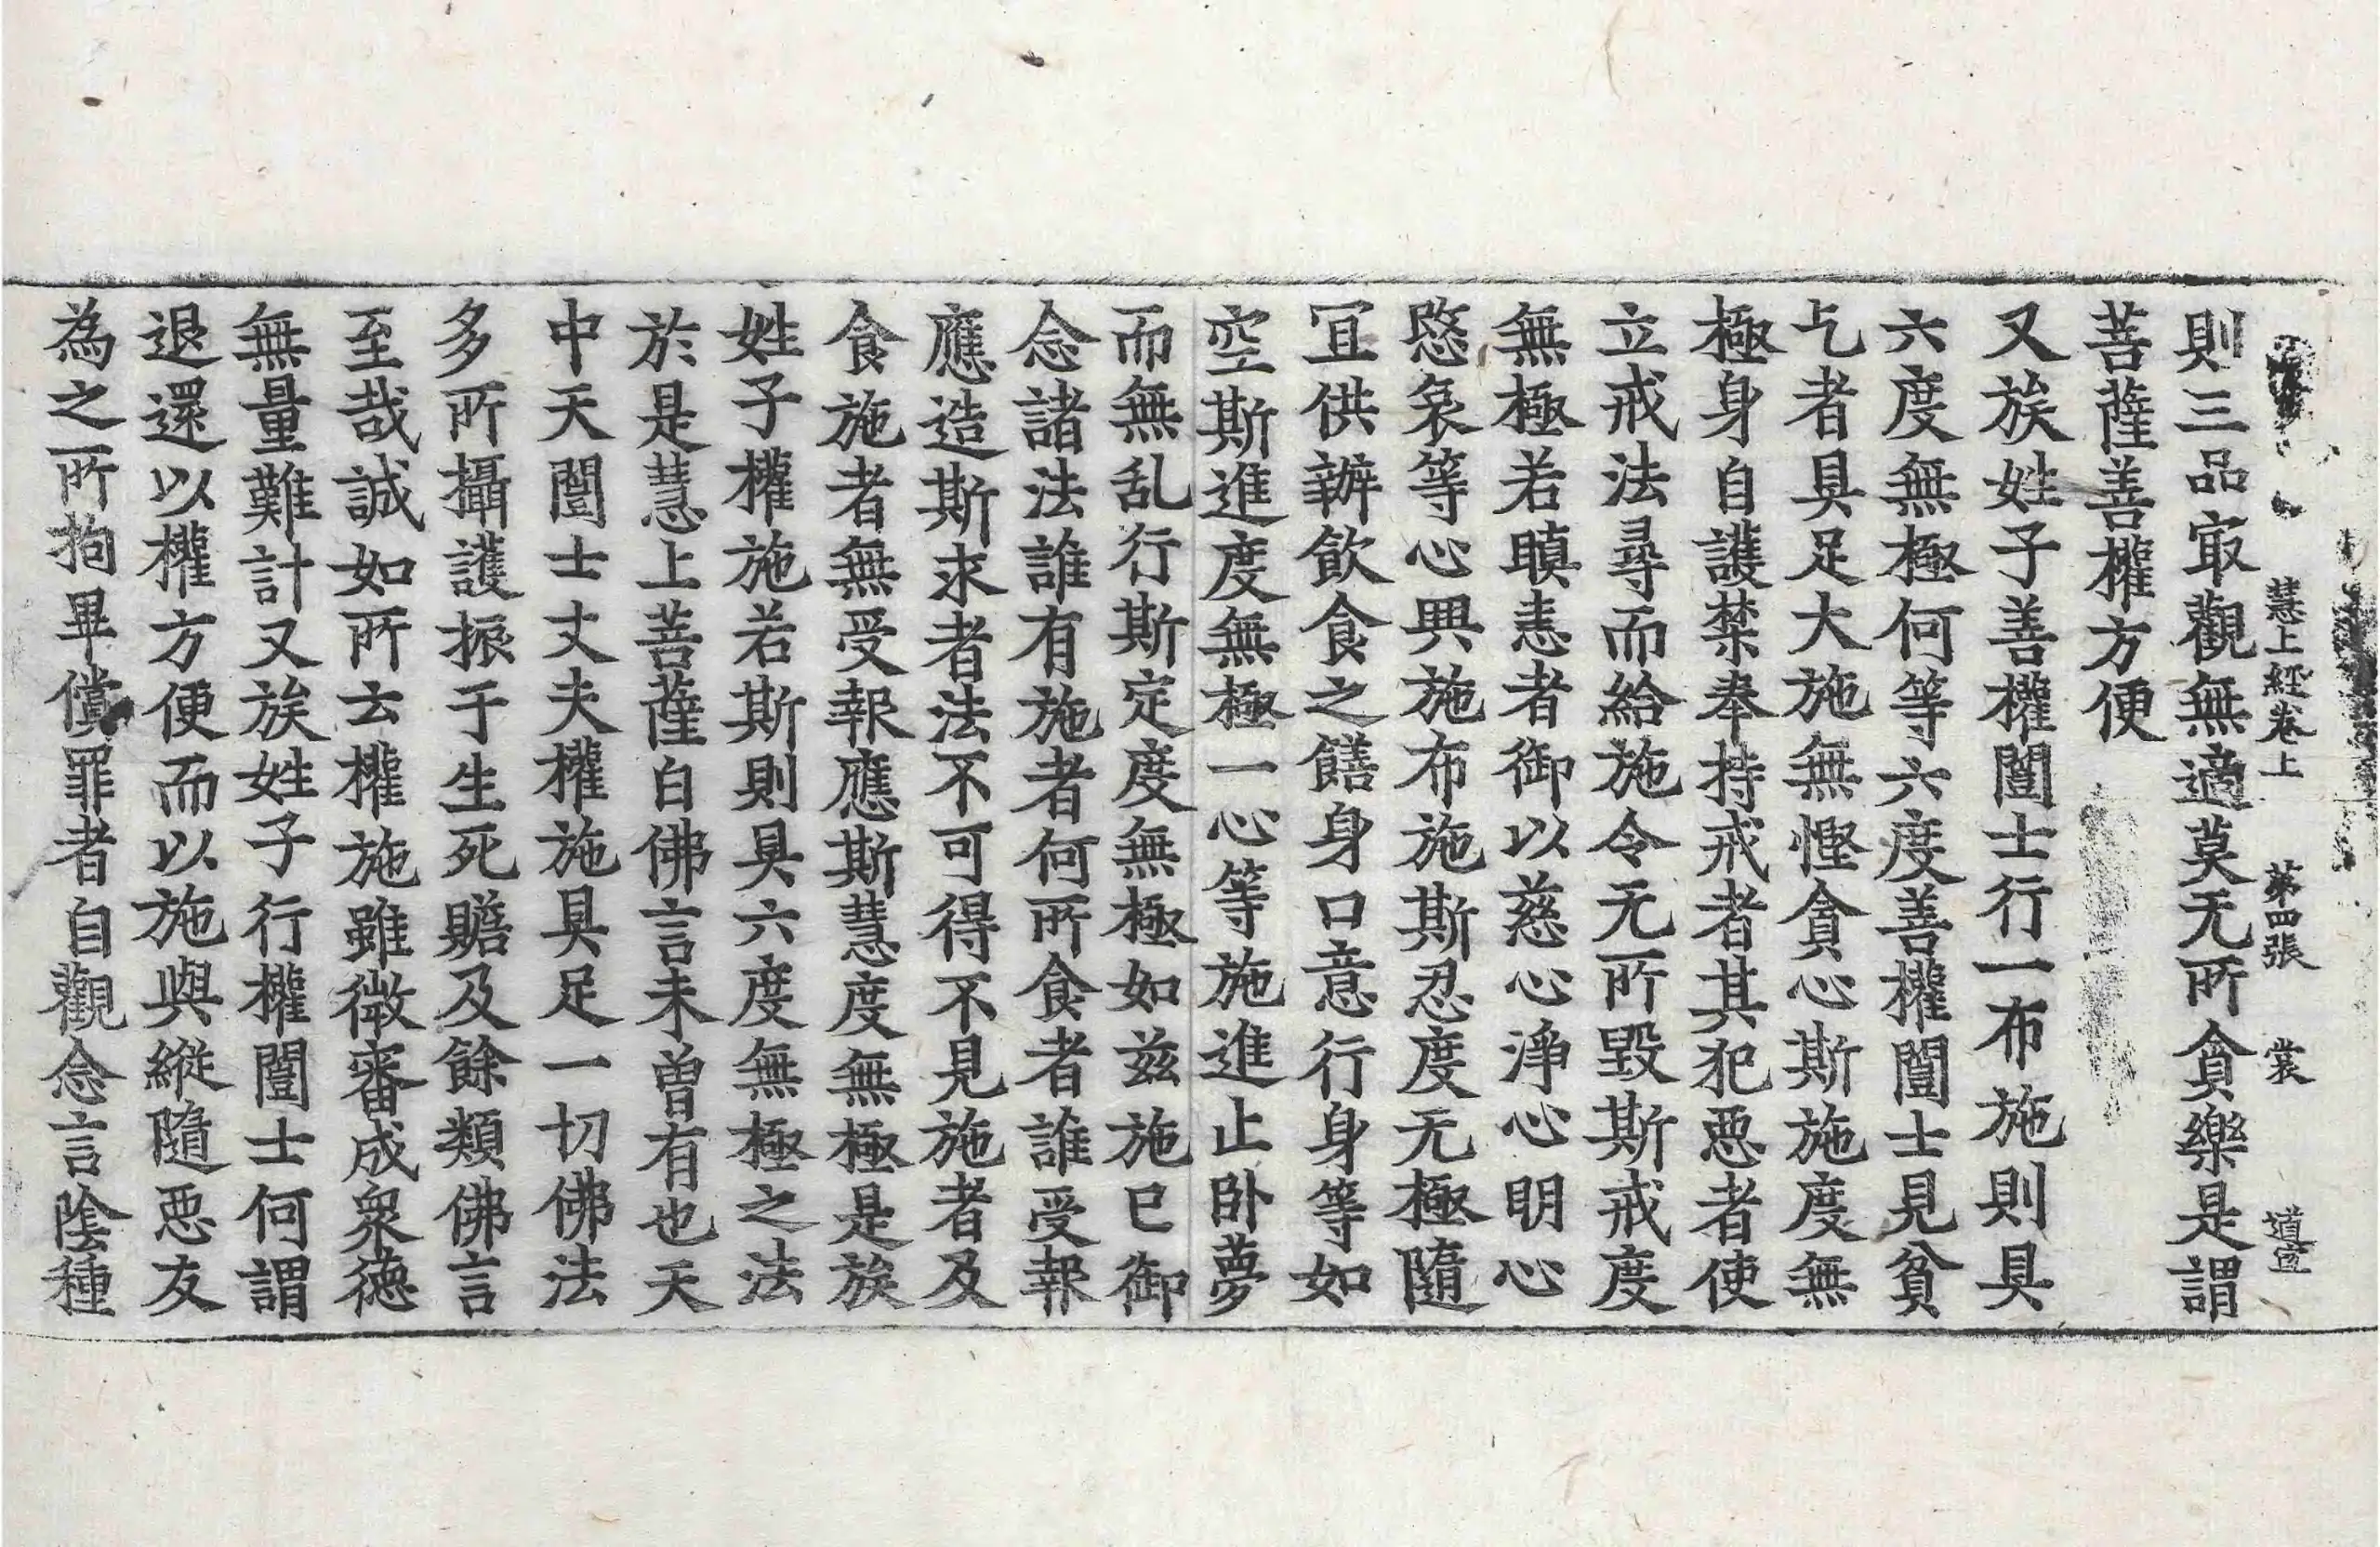 慧上經卷上　第四張　裳　道宣
則三品㝡觀無適莫无所貪樂是謂
菩薩善權方便
又族姓子善權闓士行一布施則具
六度無極何等六度善權闓士見貧
乞者具足大施無慳貪心斯施度無
極身自護禁奉持戒者其犯惡者使
立戒法尋而給施令无所毀斯戒度
無極若瞋恚者御以慈心淨心明心
愍哀等心興施布施斯忍度无極隨
冝供辦飲食之饍身口意行身等如
空斯進度無極一心等施進止卧夢
而無乱行斯定度無極如兹施已御
念諸法誰有施者何所食者誰受報
應造斯求者法不可得不見施者及
食施者無受報應斯慧度無極是族
姓子權施若斯則具六度無極之法
於是慧上菩薩白佛言未曾有也天
中天闓士丈夫權施具足一切佛法
多所攝護振于生死贍及餘類佛言
至哉誠如所云權施雖微審成衆德
無量難計又族姓子行權闓士何謂
退還以權方便而以施與縱隨惡友
為之所拘畢償罪者自觀念言陰種